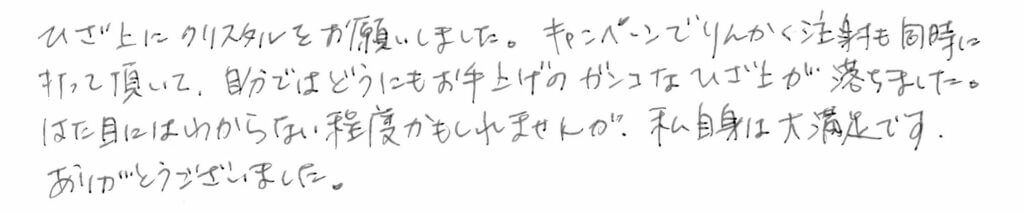 ひざ上にクリスタルをお願いしました。キャンペーンでりんかく注射も同時に
打って頂いて、自分ではどうにもお手上げのガンコなひざ上が落ちました。
はた目にはわからない程度かもしれませんが、私自身は大満足です.
ありがとうございました。